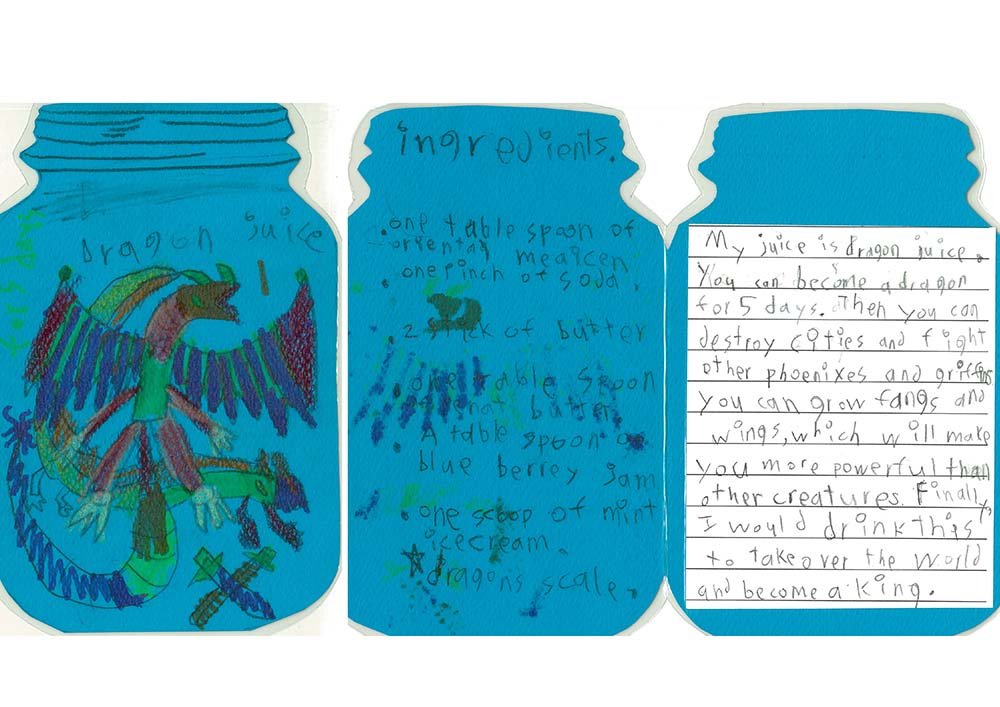 dragon juice
for 5 days
ingredients.
one table spoon of
one pinch of soda.
2 stick of butter
one table spoon
butter
A table spoon of
blue berrey jam
one scoop of mint
icecream.
dragons scale.
My juice is dragon juice.
You can become a dragon
for 5 days. Then you can
destroy cities and fight
other phoenixes and griffins
you can grow fangs and
wings, which will make
you more powerful than
other creatures. Finally,
I would drink this
to take over the world
and become a king.